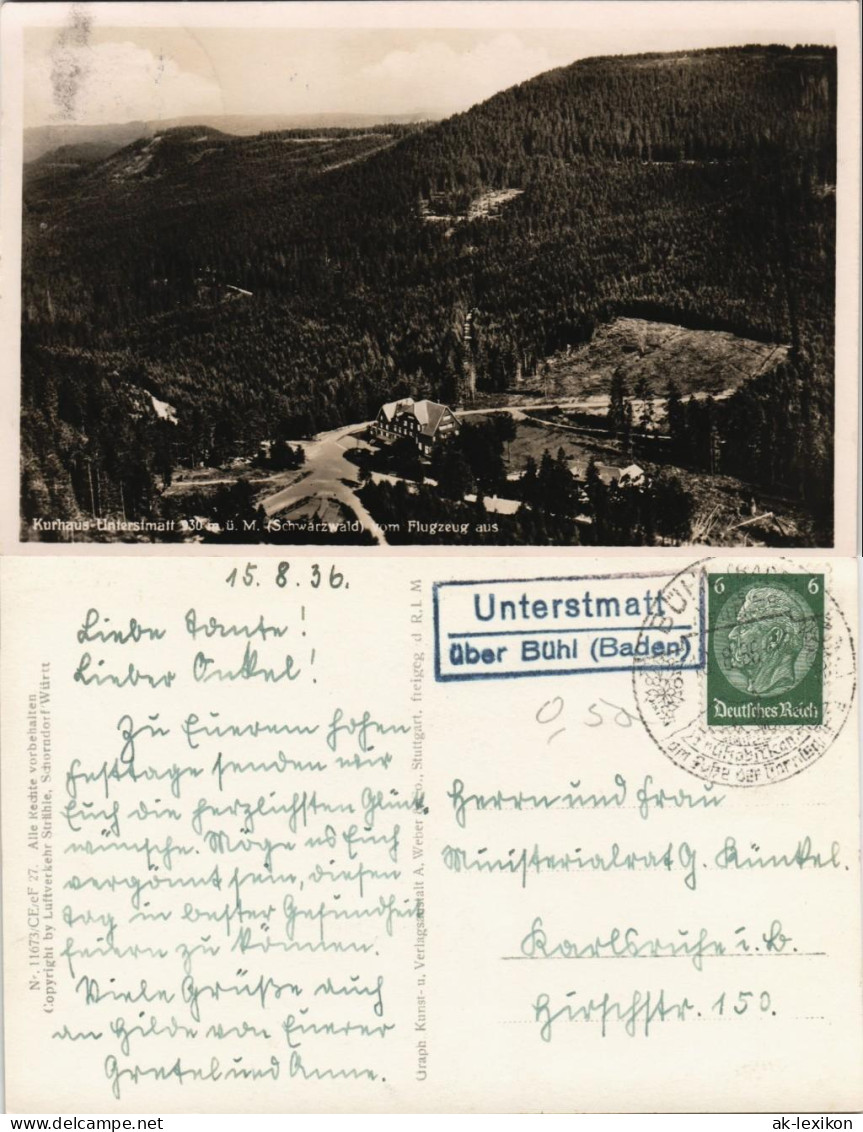 Kurhaus-Unterstmatt 930 m. ü. M. (Schwarzwald) vom Flugzeug aus
15.8.36.
Liebe Tante!
Lieber Onkel!
Zu Euerem hohen
Festtage senden wir
Euch die herzlichsten Glück-
wünsche. Möge es Euch
vergönnt sein, diesen
Tag in bester Gesundheit
feiern zu können.
Viele Grüße auch
an Hilde von Euerer
Gretel und Anne.
Nr. 11673/CE/eF 27. Alle Rechte vorbehalten
Copyright by Luftverkehr Strähle, Schorndorf/Württ
Graph. Kunst- u. Verlagsanstalt A. Weber & Co., Stuttgart, freigeg. d R.L.M
Unterstmatt
über Bühl (Baden)
BÜHL (BADEN)
6 6
Deutsches Reich
0,50
Herrn und Frau
Ministerialrat G. Künkel.
Karlsruhe i. B.
Hirschstr. 150.
www.ansichtskarten-lexikon.de
ak-lexikon